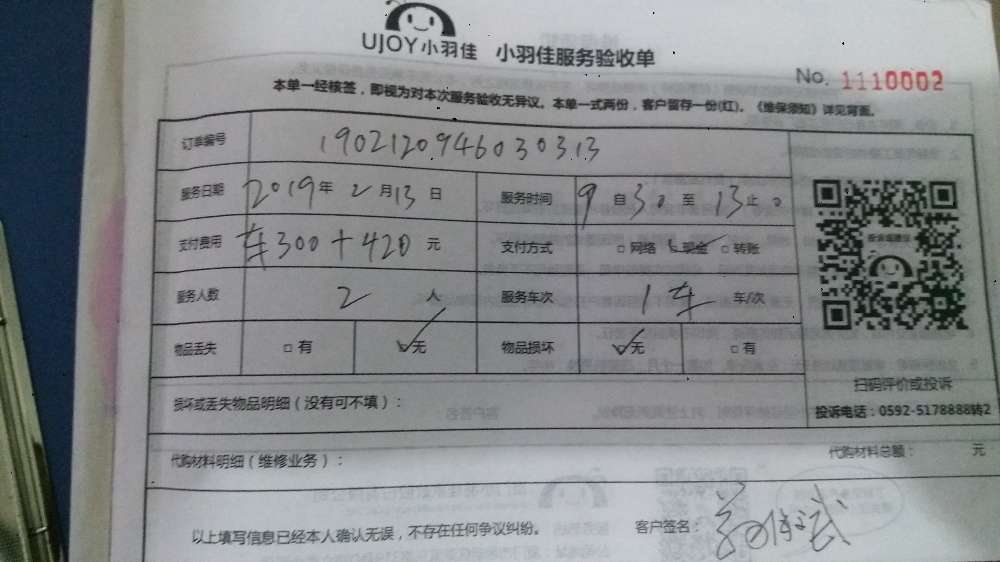 UJOY小羽佳 小羽佳服务验收单
No. 1110002
本单一经核签，即视为对本次服务验收无异议。本单一式两份，客户留存一份(红)。《维保须知》详见背面。
订单编号 190212094603031 3
服务日期 2019年 2月13日 服务时间 9自30至13止0
支付费用 车300+420元 支付方式 □网络 ☑现金 □转账
服务人数 2人 服务车次 1车 车/次
物品丢失 □有 ☑无 物品损坏 ☑无 □有
扫码评价或投诉
损坏或丢失物品明细（没有可不填）：
投诉电话：0592-5178888转2
代购材料明细（维修业务）： 代购材料总额： 元
以上填写信息已经本人确认无误，不存在任何争议纠纷。 客户签名：